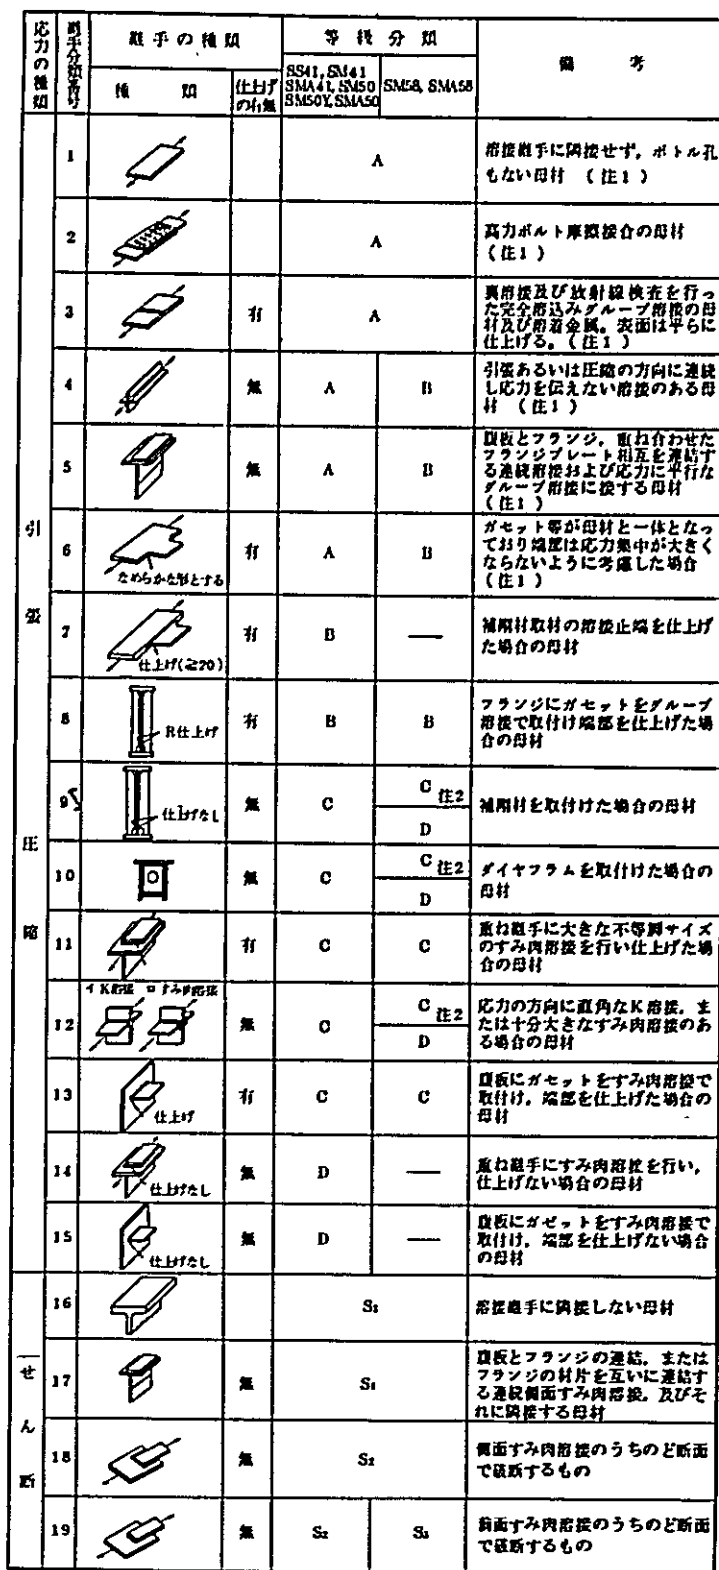 応力の種類
継手分類番号
継手の種類
等級分類
備考
種類
仕上げ
の有無
SS41, SM41
SMA41, SM50
SM50Y, SMA50
SM58, SMA58
引張
圧縮
1
A
溶接継手に隣接せず，ボトル孔
もない母材 （注1）
2
A
高力ボルト摩擦接合の母材
（注1）
3
有
A
裏溶接及び放射線検査を行っ
た完全溶込みグルーブ溶接の母
材及び溶着金属。表面は平らに
仕上げる。（注1）
4
無
A
B
引張あるいは圧縮の方向に連続
し応力を伝えない溶接のある母
材 （注1）
5
無
A
B
腹板とフランジ，重ね合わせた
フランジプレート相互を連結す
る連続溶接および応力に平行な
グルーブ溶接に接する母材
（注1）
6
なめらかな形とする
有
A
B
ガセット等が母材と一体となっ
ており端部は応力集中が大きく
ならないように考慮した場合
（注1）
7
仕上げ(≧20)
有
B
—
補剛材取材の溶接止端を仕上げ
た場合の母材
8
R仕上げ
有
B
B
フランジにガセットをグルーブ
溶接で取付け端部を仕上げた場
合の母材
9
仕上げなし
無
C
C 注2
D
補剛材を取付けた場合の母材
10
無
C
C 注2
D
ダイヤフラムを取付けた場合の
母材
11
有
C
C
重ね継手に大きな不等脚サイズ
のすみ肉溶接を行い仕上げた場
合の母材
12
イ K溶接 ロ すみ肉溶接
無
C
C 注2
D
応力の方向に直角なK溶接，ま
たは十分大きなすみ肉溶接のあ
る場合の母材
13
仕上げ
有
C
C
腹板にガセットをすみ肉溶接で
取付け，端部を仕上げた場合の
母材
14
仕上げなし
無
D
—
重ね継手にすみ肉溶接を行い，
仕上げない場合の母材
15
仕上げなし
無
D
—
腹板にガゼットをすみ肉溶接で
取付け，端部を仕上げない場合
の母材
せん断
16
S₁
溶接継手に隣接しない母材
17
無
S₁
腹板とフランジの連結，または
フランジの材片を互いに連結す
る連続側面すみ肉溶接，及びそ
れに隣接する母材
18
無
S₂
側面すみ肉溶接のうちのど断面
で破断するもの
19
無
S₂
S₃
前面すみ肉溶接のうちのど断面
で破断するもの